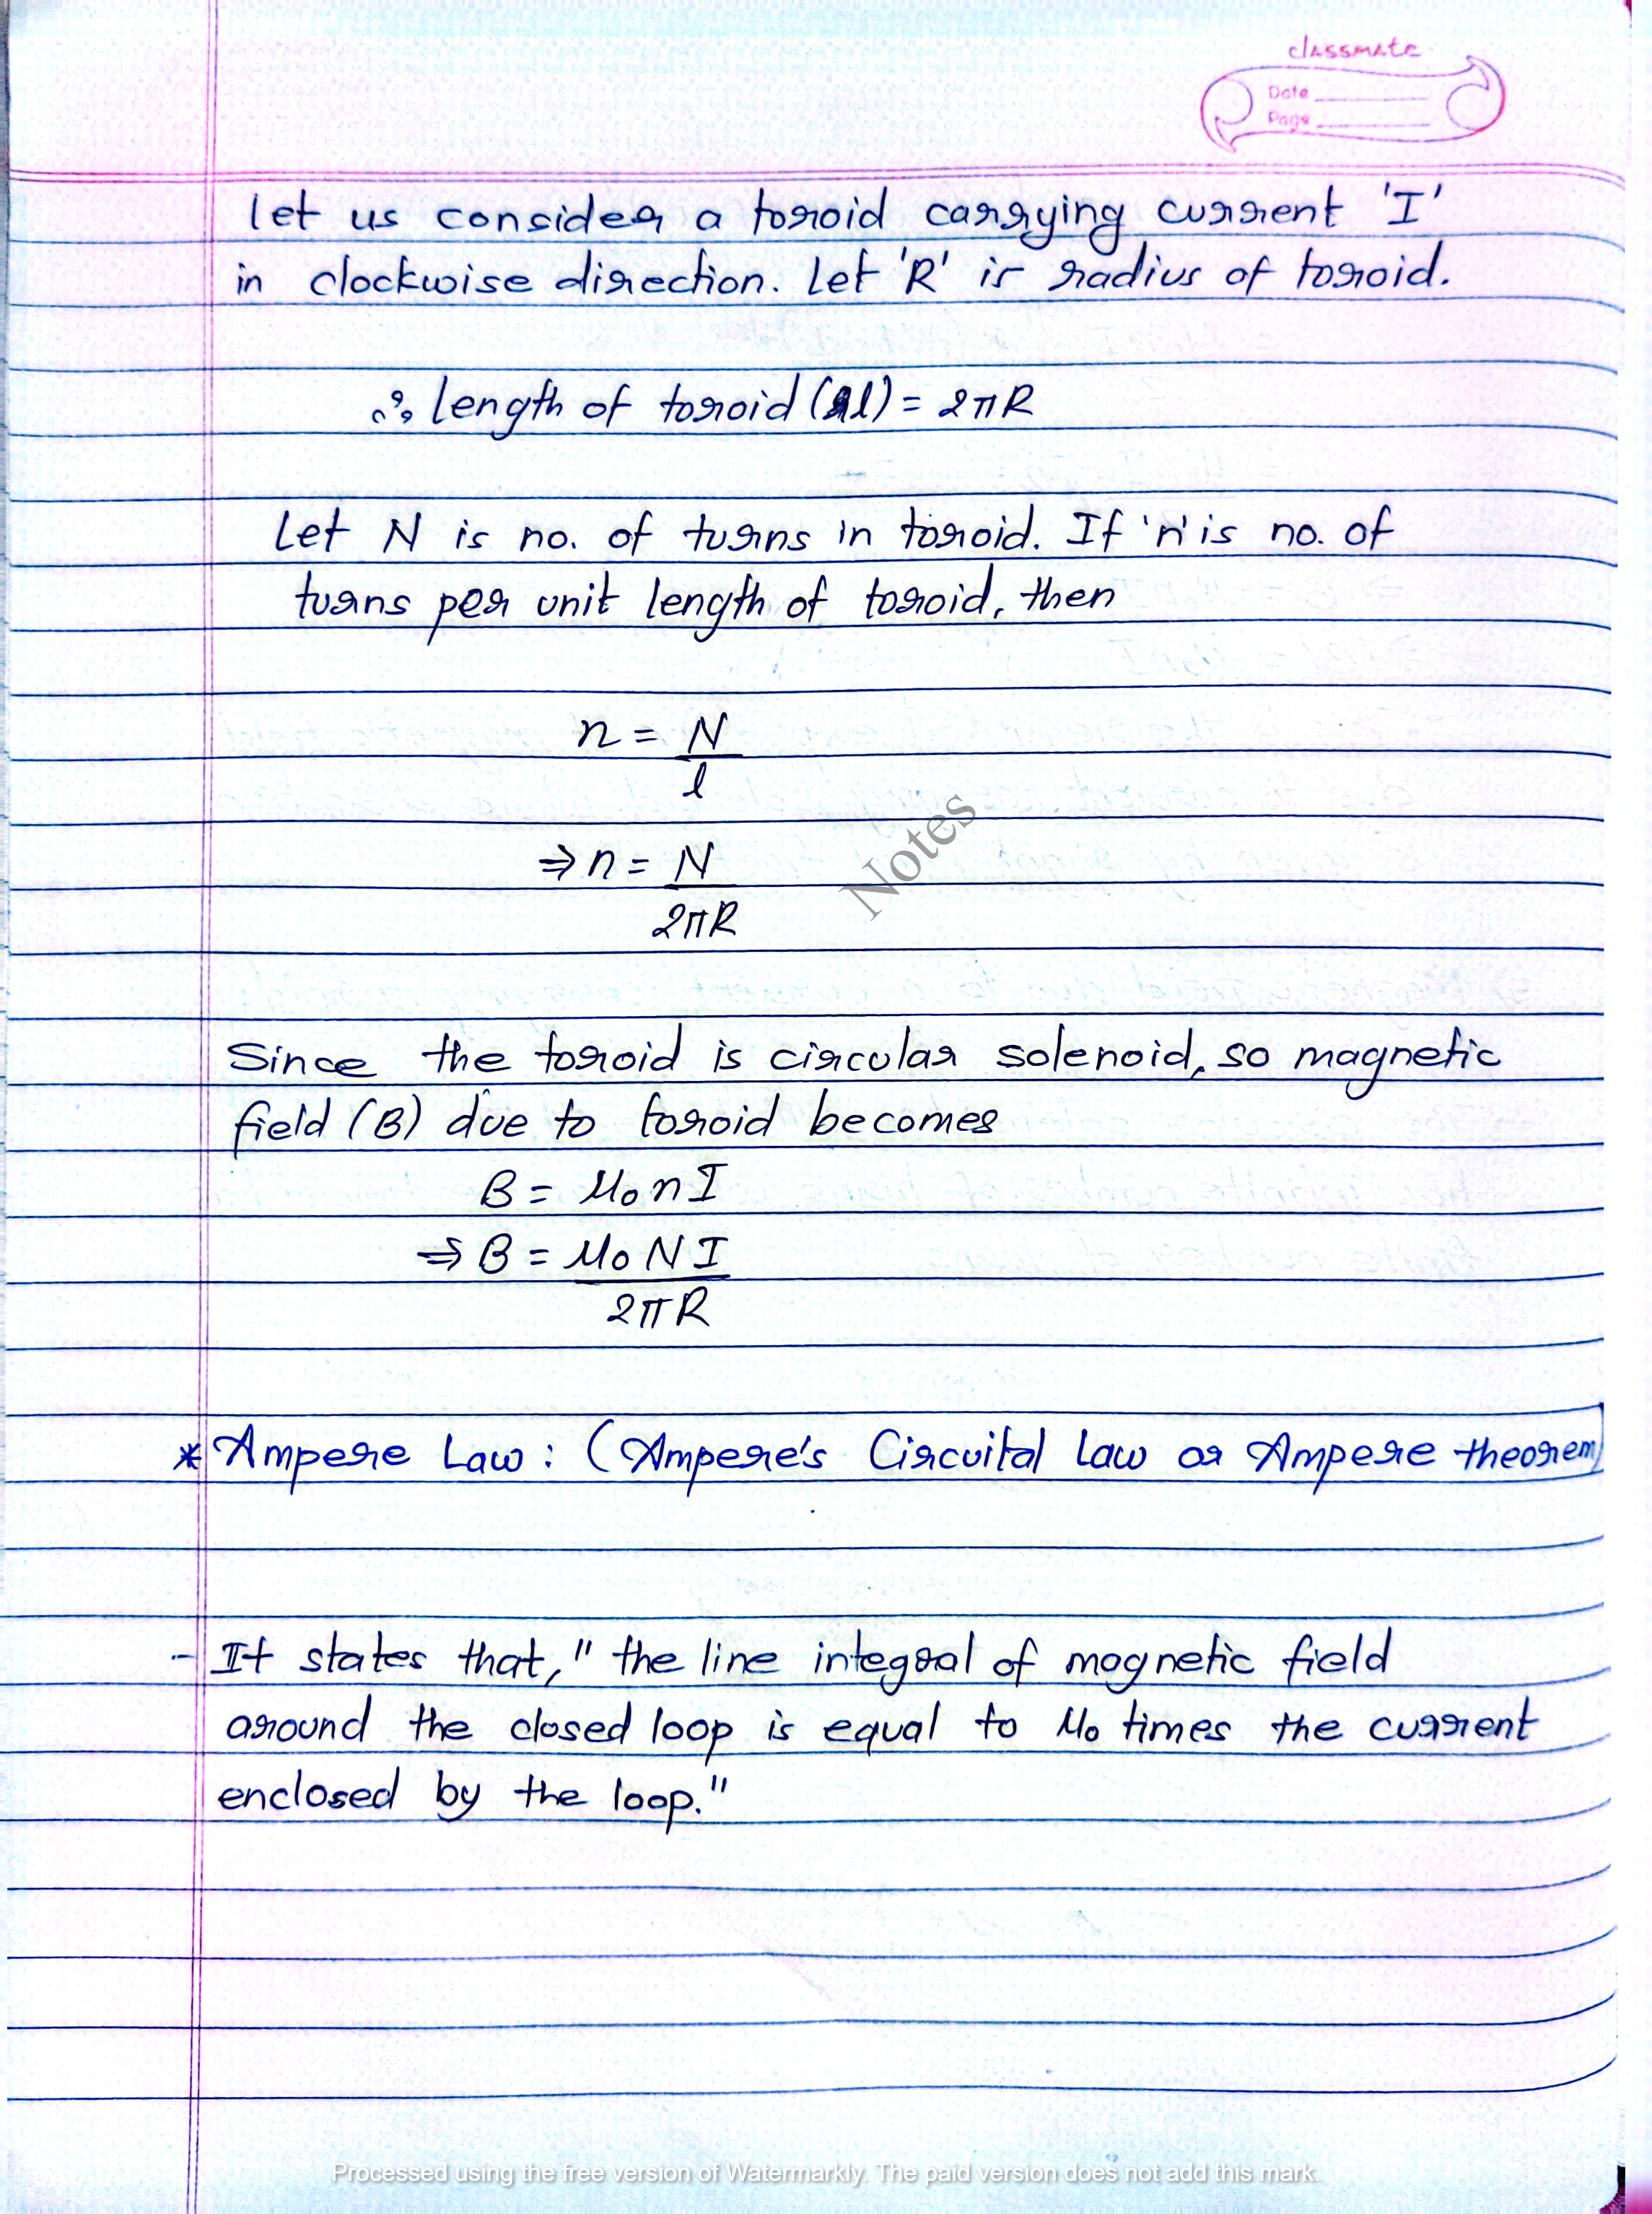 classmate
Date
Page
let us consider a toroid carrying current 'I'
in clockwise direction. Let 'R' is radius of toroid.
∴ length of toroid (l) = 2πR
Let N is no. of turns in toroid. If 'n' is no. of
turns per unit length of toroid, then
n = N
l
⇒ n = N
2πR
Notes
Since the toroid is circular solenoid, so magnetic
field (B) due to toroid becomes
B = μ₀nI
⇒ B = μ₀NI
2πR
* Ampere Law: (Ampere's Circuital Law or Ampere theorem)
- It states that, "the line integral of magnetic field
around the closed loop is equal to μ₀ times the current
enclosed by the loop."
Processed using the free version of Watermarkly. The paid version does not add this mark.